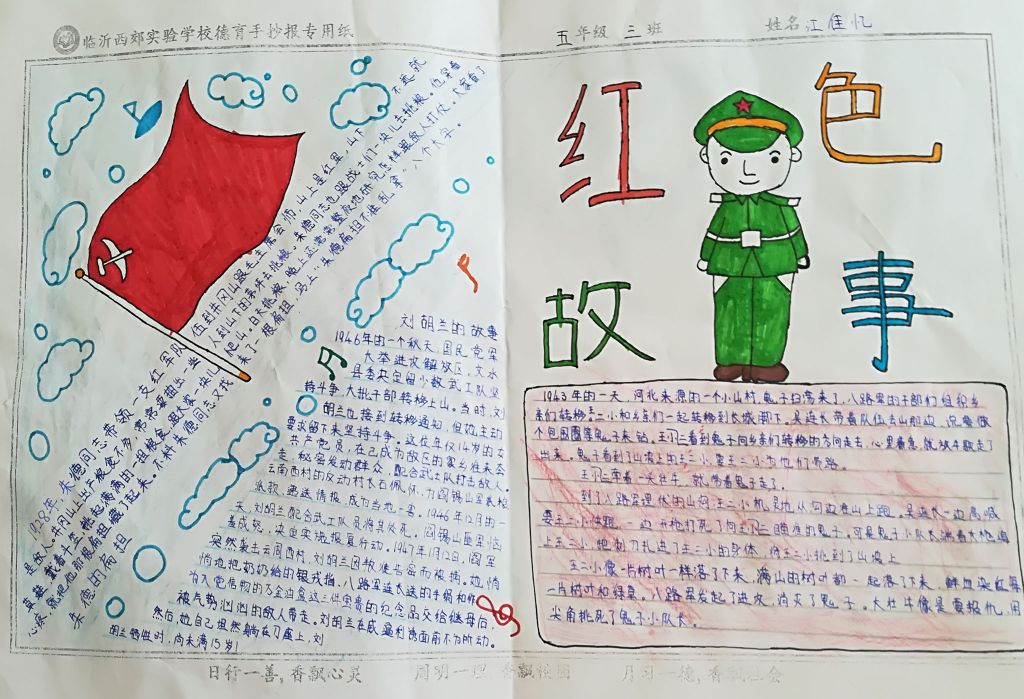 临沂西郊实验学校德育手抄报专用纸
五年级 三班 姓名 江佳忆
红色
故事
朱德的扁担
1928年,朱德同志带领一支红军队伍到井冈山跟毛主席会师,山上是红军,山下不远就
是敌人。井冈山上出产粮食不多,常常要抽出一些人到山下的茅坪去挑粮。朱德同志也跟战士们一块儿去挑粮。他穿着
草鞋,戴着斗笠,挑起满满的一担粮食,跟大家一块儿爬山。白天挑粮,晚上还常常整夜地研究怎样跟敌人打仗。大家看了
心疼,就把他那根扁担藏了起来。不料朱德同志又找来了一根扁担,写上“朱德扁担不准乱拿”八个大字。
刘胡兰的故事
1946年的一个秋天,国民党军
大举进攻解放区,文水
县委决定留少数武工队坚
持斗争,大批干部转移上山。当时,刘
胡兰也接到转移通知,但她主动
要求留下来坚持斗争。这位年仅14岁的女
共产党员,在已成为敌区的家乡往来奔
走,秘密发动群众,配合武工队打击敌人。
云南西村的反动村长石佩怀,为阎锡山军派粮
派款,递送情报,成为当地一害。1946年12月的一
天,刘胡兰配合武工队员将其处死。阎锡山匪军恼
羞成怒,决定实施报复行动。1947年1月12日,阎军
突然袭击云周西村,刘胡兰因叛徒告密而被捕。她悄
悄地把奶奶给的银戒指、八路军连长送的手绢和作
为入党信物的万金油盒这三件宝贵的纪念品交给继母后,
被气势汹汹的敌人带走。刘胡兰在威逼利诱面前不为所动。
然后,她自己坦然躺在刀座上,刘
胡兰牺牲时,尚未满15岁!
1943年的一天,河北涞源的一个小山村,鬼子扫荡来了,八路军的干部们组织乡
亲们转移,王二小和乡亲们一起转移到长城脚下,吴连长带着队伍去山那边,说要做
个包围圈等鬼子来钻。王二小看到鬼子向乡亲们转移的方向走去,心里着急,就故意走了
出来。鬼子看到了山坡上的王二小,要王二小为他们带路。
到了八路军埋伏的山沟,王二小机灵地从河边往山上跑,吴连长一边高喊
要王二小快跑,一边开枪打死了向王二小瞄准的鬼子。可是鬼子小队长端着大枪追
上王二小,把刺刀扎进了王二小的身体,将王二小挑到了山坡上。
王二小像一片树叶一样落了下来,满山的树叶都一起落了下来,鲜血染红第
一片树叶和绿草。八路军发起了进攻,消灭了鬼子。大牡牛像是要报仇,用
尖角挑死了鬼子小队长。
日行一善,香飘心灵 周明一理,香飘校园 月习一德,香飘社会